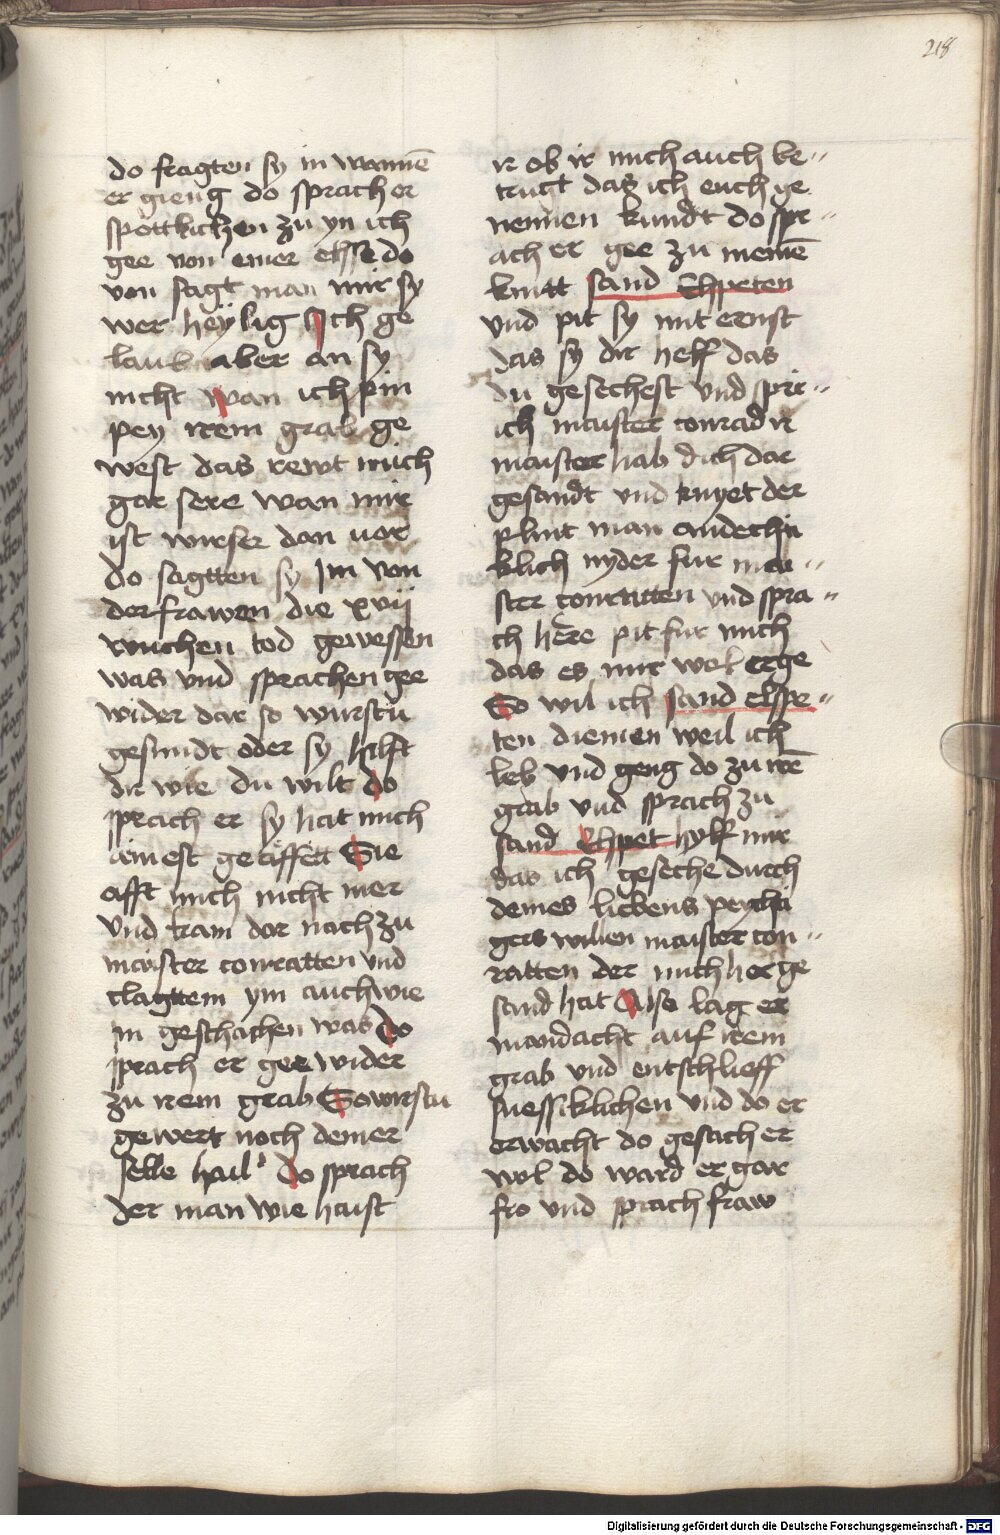 218
do fragten sy in wannē
er gieng do sprach er
spottlichen zu yn ich
gee von einer elsse do
von sagt man mir sy
wer heylig Ich ge
laub aber an sy
nicht wan ich pin
pey irem grab ge
west das rewt mich
gar sere wan mir
ist wirser dan vor
do sagtten sy Im von
der frawen die xvij
wuchen tod gewessen
was vnd sprachen gee
wider dar so wurstu
gesundt oder sy hilft
dir wie du wilt do
sprach er sy hat mich
ainest geäffett Sie
afft mich nicht mer
Vnd kam dor nach zu
maister conratten vnd
clagttem ym auch wie
im geschachen was do
sprach er gee wider
zu irem grab So wirstu
gewert noch deiner
selle hail do sprach
der man wie haist
ir ob ir mich auch be〃
trugt das ich euch ge
nennen kundt do spr〃
ach er gee zu meinē
kintt sand Elspeten
vnd pit sy mit ernst
das sy dir helf das
du gesechest vnd spri〃
ich maister conrad ir
maister hab dich dar
gesandt vnd knyet der
plint man andechti
klich nyder fur mai〃
ster conratten vnd spra〃
ch here pit fur mich
das es mir wol erge
So wil ich sand elspe〃
ten dienen weil ich
leb vnd geng do zu irē
grab vnd sprach zu
sand Elspet hylf mir
das ich geseche durch
deines liebens peychti
gers willen maister con〃
ratten der mich her ge
sand hat Also lag er
in andacht auf irem
grab vnd entschlieff
suessiklichen vnd do er
erwacht do gesach er
wol do ward er gar
fro vnd sprach fraw
Digitalisierung gefördert durch die Deutsche Forschungsgemeinschaft - DFG